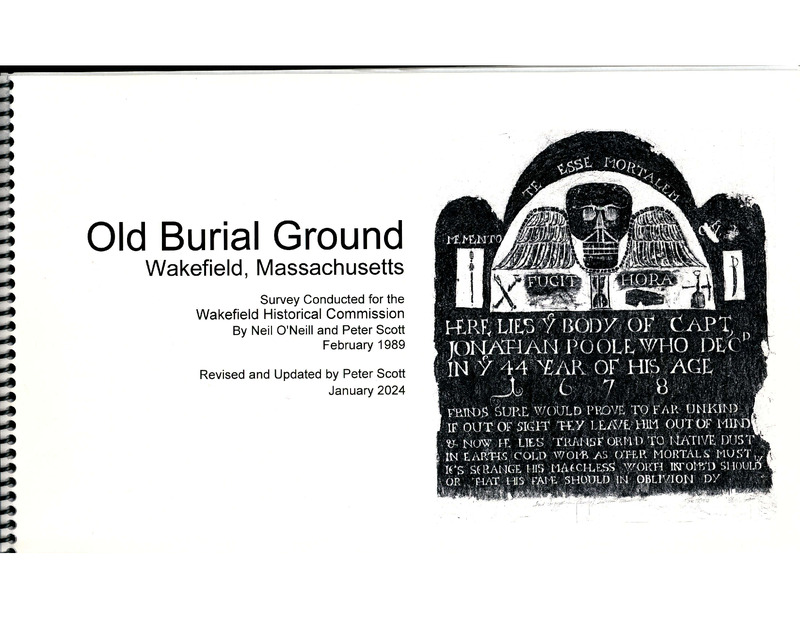 Old Burial Ground
Wakefield, Massachusetts
Survey Conducted for the
Wakefield Historical Commission
By Neil O'Neill and Peter Scott
February 1989
Revised and Updated by Peter Scott
January 2024
TE ESSE MORTALEM
MEMENTO
FUGIT HORA
HERE LIES Ye BODY OF CAPT,
JONATHAN POOLE WHO DECD
IN Ye 44 YEAR OF HIS AGE
1 6 7 8
FRINDS SURE WOULD PROVE TO FAR UNKIND
IF OUT OF SIGHT THEY LEAVE HIM OUT OF MIND
& NOW HE LIES TRANSFORMD TO NATIVE DUST
IN EARTHS COLD WOMB AS OTHER MORTALS MUST
IT'S STRANGE HIS MATCHLESS WORTH INTOMB'D SHOULD LY
OR THAT HIS FAME SHOULD IN OBLIVION DY